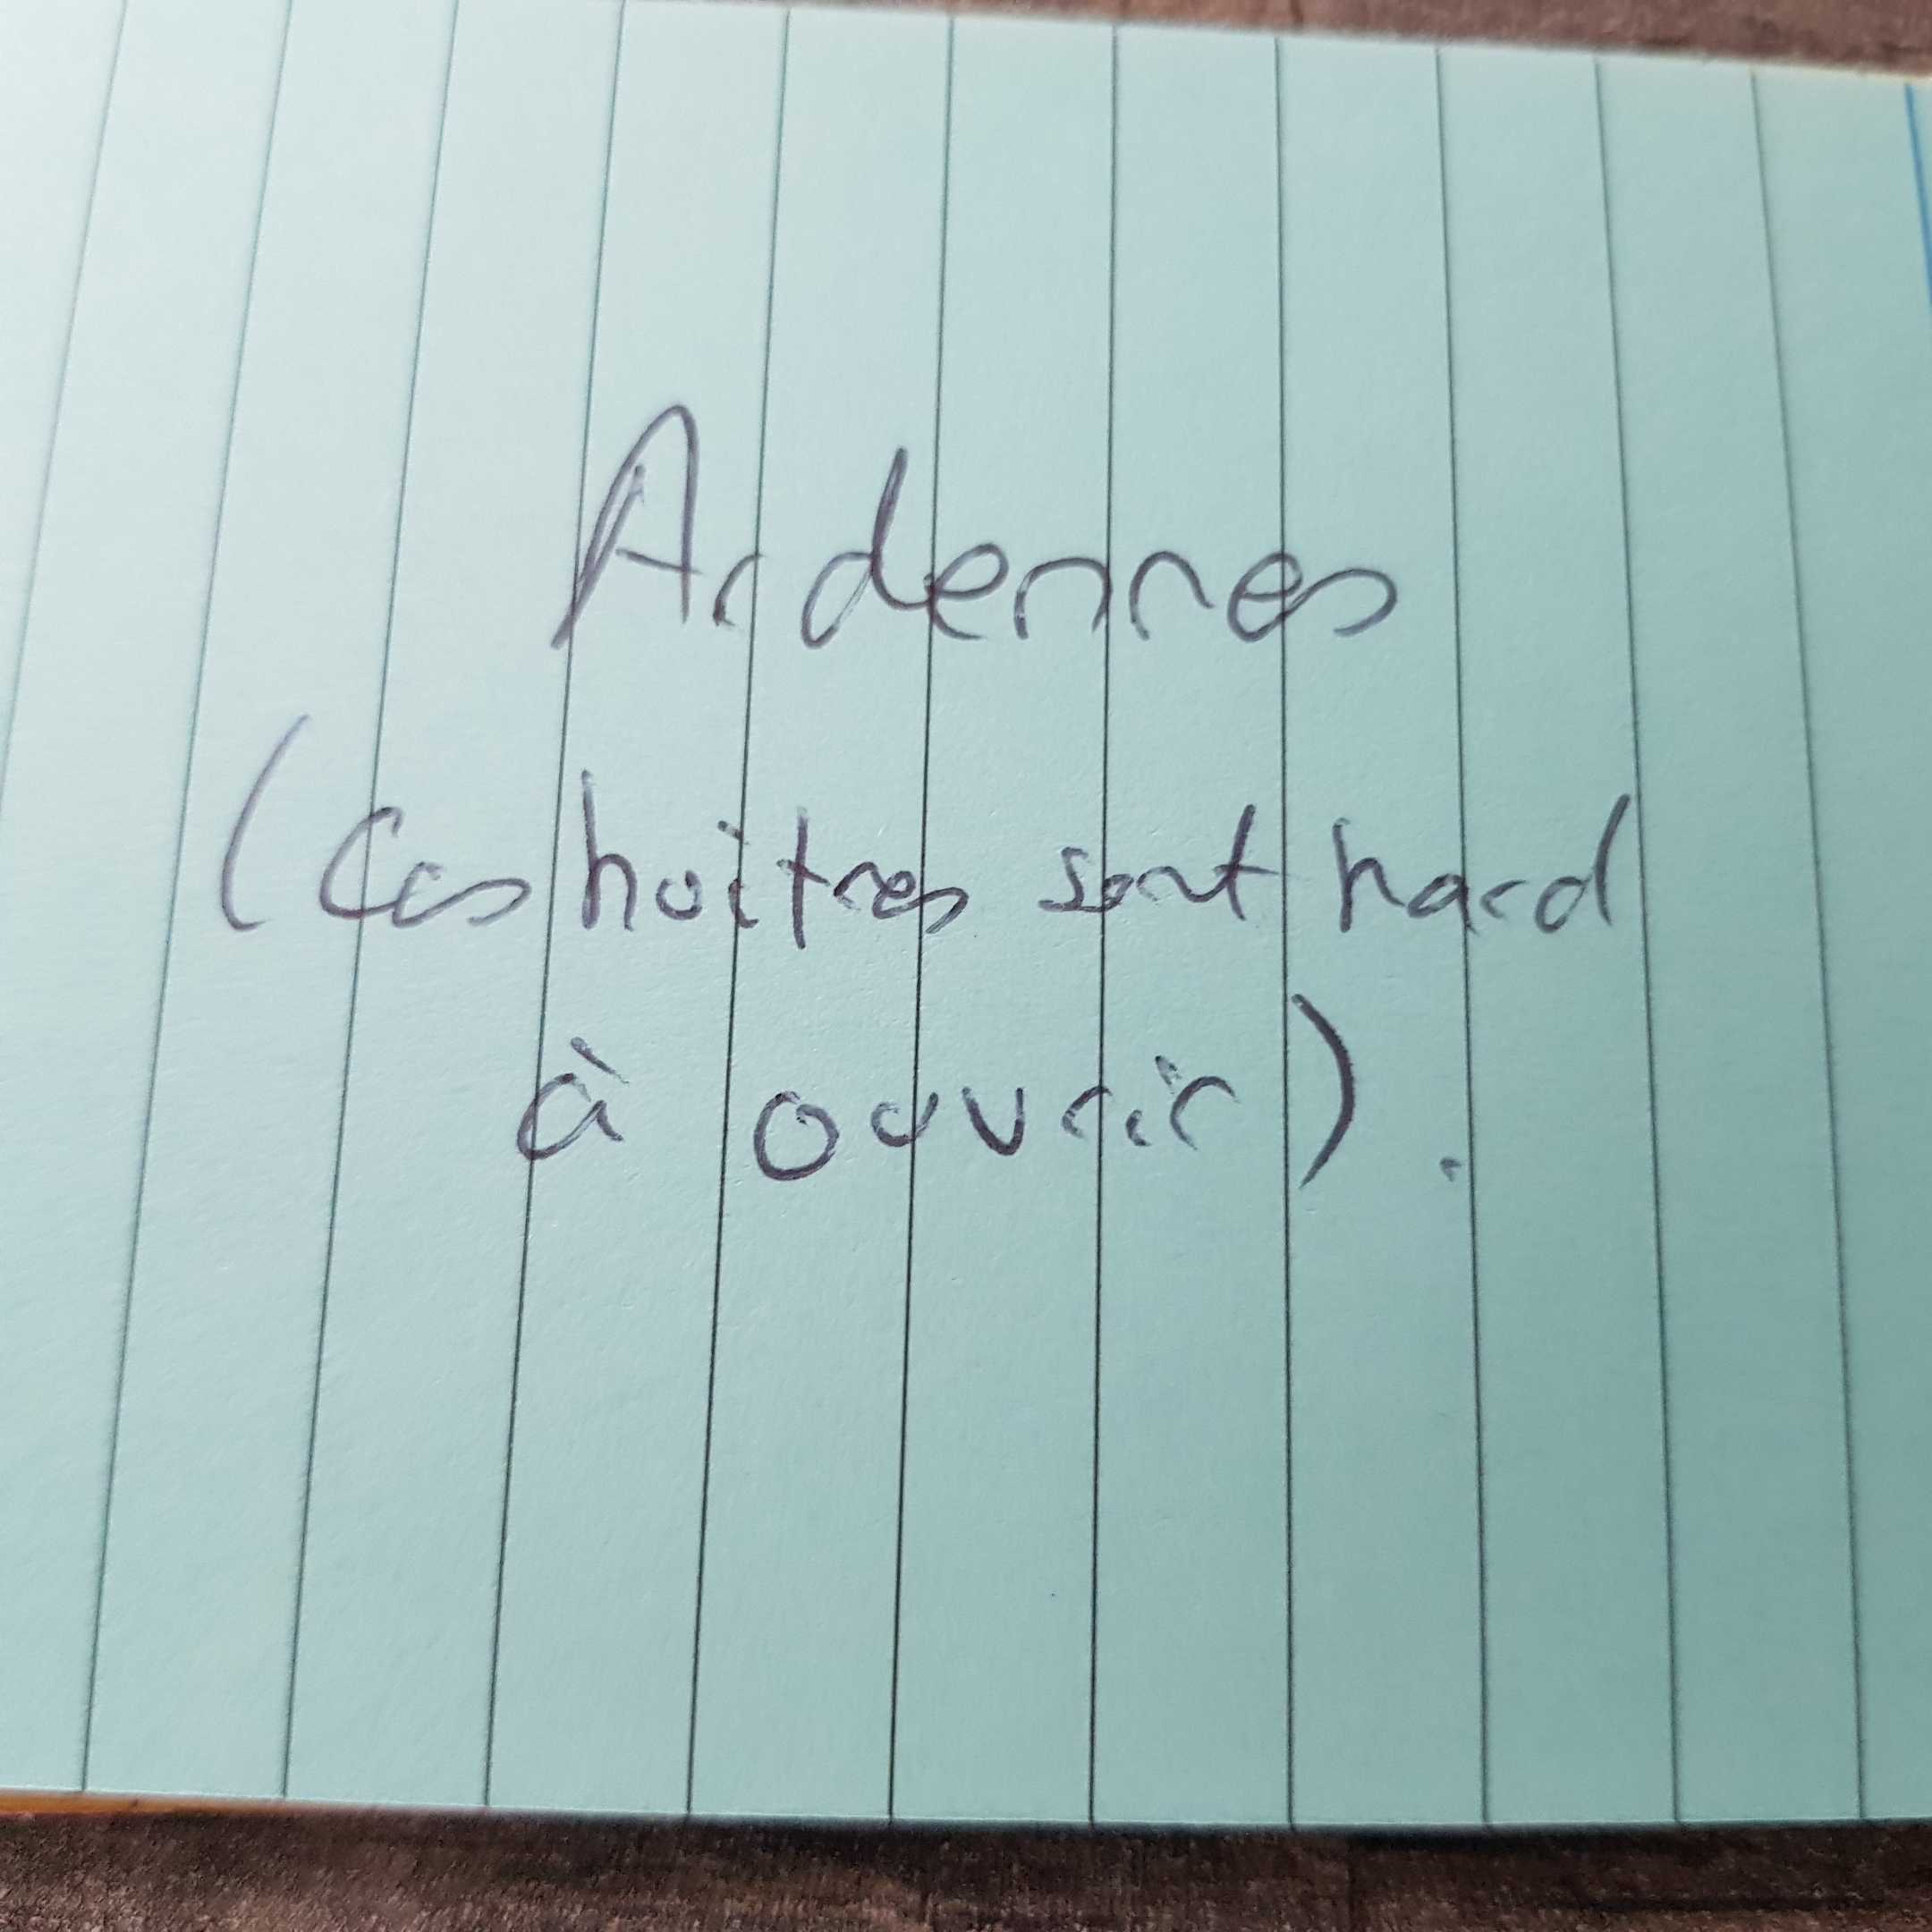 Ardennes
(Ces hoitres sont hard
à ouvrir).